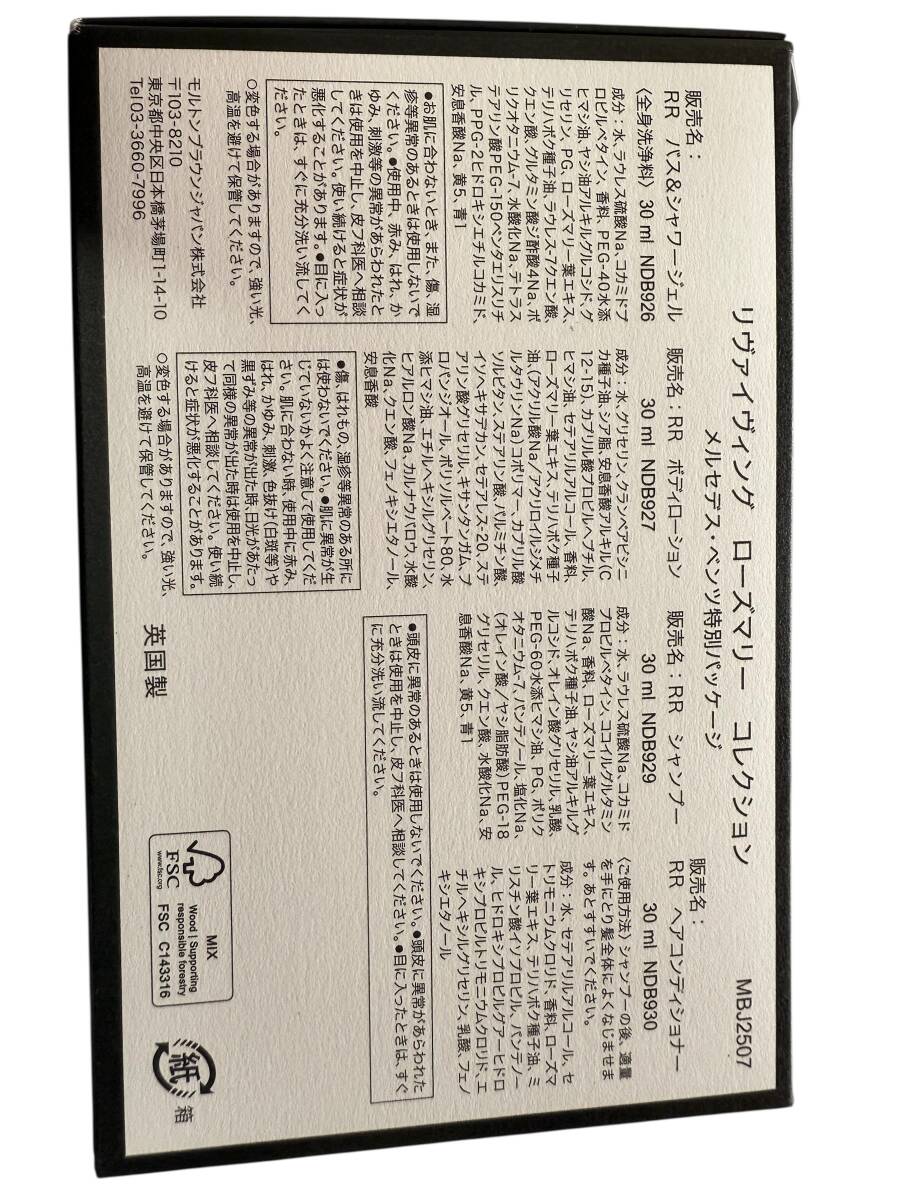 リヴァイヴィング ローズマリー コレクション
MBJ2507
メルセデス・ベンツ特別パッケージ
販売名：
RR バス&シャワージェル
〈全身洗浄料〉 30 ml NDB926
成分：水、ラウレス硫酸Na、コカミドプ
ロピルベタイン、香料、PEG-40水添
ヒマシ油、ヤシ油アルキルグルコシド、グ
リセリン、PG、ローズマリー葉エキス、
テリハボク種子油、ラウレス-7クエン酸、
クエン酸、グルタミン酸ジ酢酸4Na、ポ
リクオタニウム-7、水酸化Na、テトラス
テアリン酸PEG-150ペンタエリスリチ
ル、PPG-2ヒドロキシエチルコカミド、
安息香酸Na、黄5、青1
●お肌に合わないとき、また、傷、湿
疹等異常のあるときは使用しないで
ください。●使用中、赤み、はれ、か
ゆみ、刺激等の異常があらわれたと
きは使用を中止し、皮フ科医へ相談
してください。使い続けると症状が
悪化することがあります。●目に入っ
たときは、すぐに充分洗い流してく
ださい。
○変色する場合がありますので、強い光、
高温を避けて保管してください。
モルトンブラウンジャパン株式会社
〒103-8210
東京都中央区日本橋茅場町1-14-10
Tel03-3660-7996
販売名：RR ボディローション
30 ml NDB927
成分：水、グリセリン、クランベアビシニ
カ種子油、シア脂、安息香酸アルキル(C
12-15)、カプリル酸プロピルヘプチル、
ヒマシ油、セテアリルアルコール、香料、
ローズマリー葉エキス、テリハボク種子
油、(アクリル酸Na/アクリロイルジメチ
ルタウリンNa)コポリマー、カプリル酸
ソルビタン、ステアリン酸、パルミチン酸、
イソヘキサデカン、セテアレス-20、ステ
アリン酸グリセリル、キサンタンガム、プ
ロパンジオール、ポリソルベート80、水
添ヒマシ油、エチルヘキシルグリセリン、
ヒアルロン酸Na、カルナウバロウ、水酸
化Na、クエン酸、フェノキシエタノール、
安息香酸
●傷、はれもの、湿疹等異常のある所に
は使わないでください。●肌に異常が生
じていないかよく注意して使用してくだ
さい。肌に合わない時、使用中に赤み、
はれ、かゆみ、刺激、色抜け(白斑等)や
黒ずみ等の異常が出た時、日光があたっ
て同様の異常が出た時は使用を中止し、
皮フ科医へ相談してください。使い続
けると症状が悪化することがあります。
○変色する場合がありますので、強い光、
高温を避けて保管してください。
英国製
販売名：RR シャンプー
30 ml NDB929
成分：水、ラウレス硫酸Na、コカミド
プロピルベタイン、ココイルグルタミン
酸Na、香料、ローズマリー葉エキス、
テリハボク種子油、ヤシ油アルキルグ
ルコシド、オレイン酸グリセリル、乳酸、
PEG-60水添ヒマシ油、PG、ポリク
オタニウム-7、パンテノール、塩化Na、
(オレイン酸/ヤシ脂肪酸)PEG-18
グリセリル、クエン酸、水酸化Na、安
息香酸Na、黄5、青1
販売名：
RR ヘアコンディショナー
30 ml NDB930
〈ご使用方法〉シャンプーの後、適量
を手にとり髪全体によくなじませま
す。あとすすいでください。
成分：水、セテアリルアルコール、セ
トリモニウムクロリド、香料、ローズマ
リー葉エキス、テリハボク種子油、ミ
リスチン酸イソプロピル、パンテノー
ル、ヒドロキシプロピルグアーヒドロ
キシプロピルトリモニウムクロリド、エ
チルヘキシルグリセリン、乳酸、フェノ
キシエタノール
●頭皮に異常のあるときは使用しないでください。●頭皮に異常があらわれた
ときは使用を中止し、皮フ科医へ相談してください。●目に入ったときは、すぐ
に充分洗い流してください。
FSC
www.fsc.org
MIX
Wood | Supporting
responsible forestry
FSC C143316
紙
箱